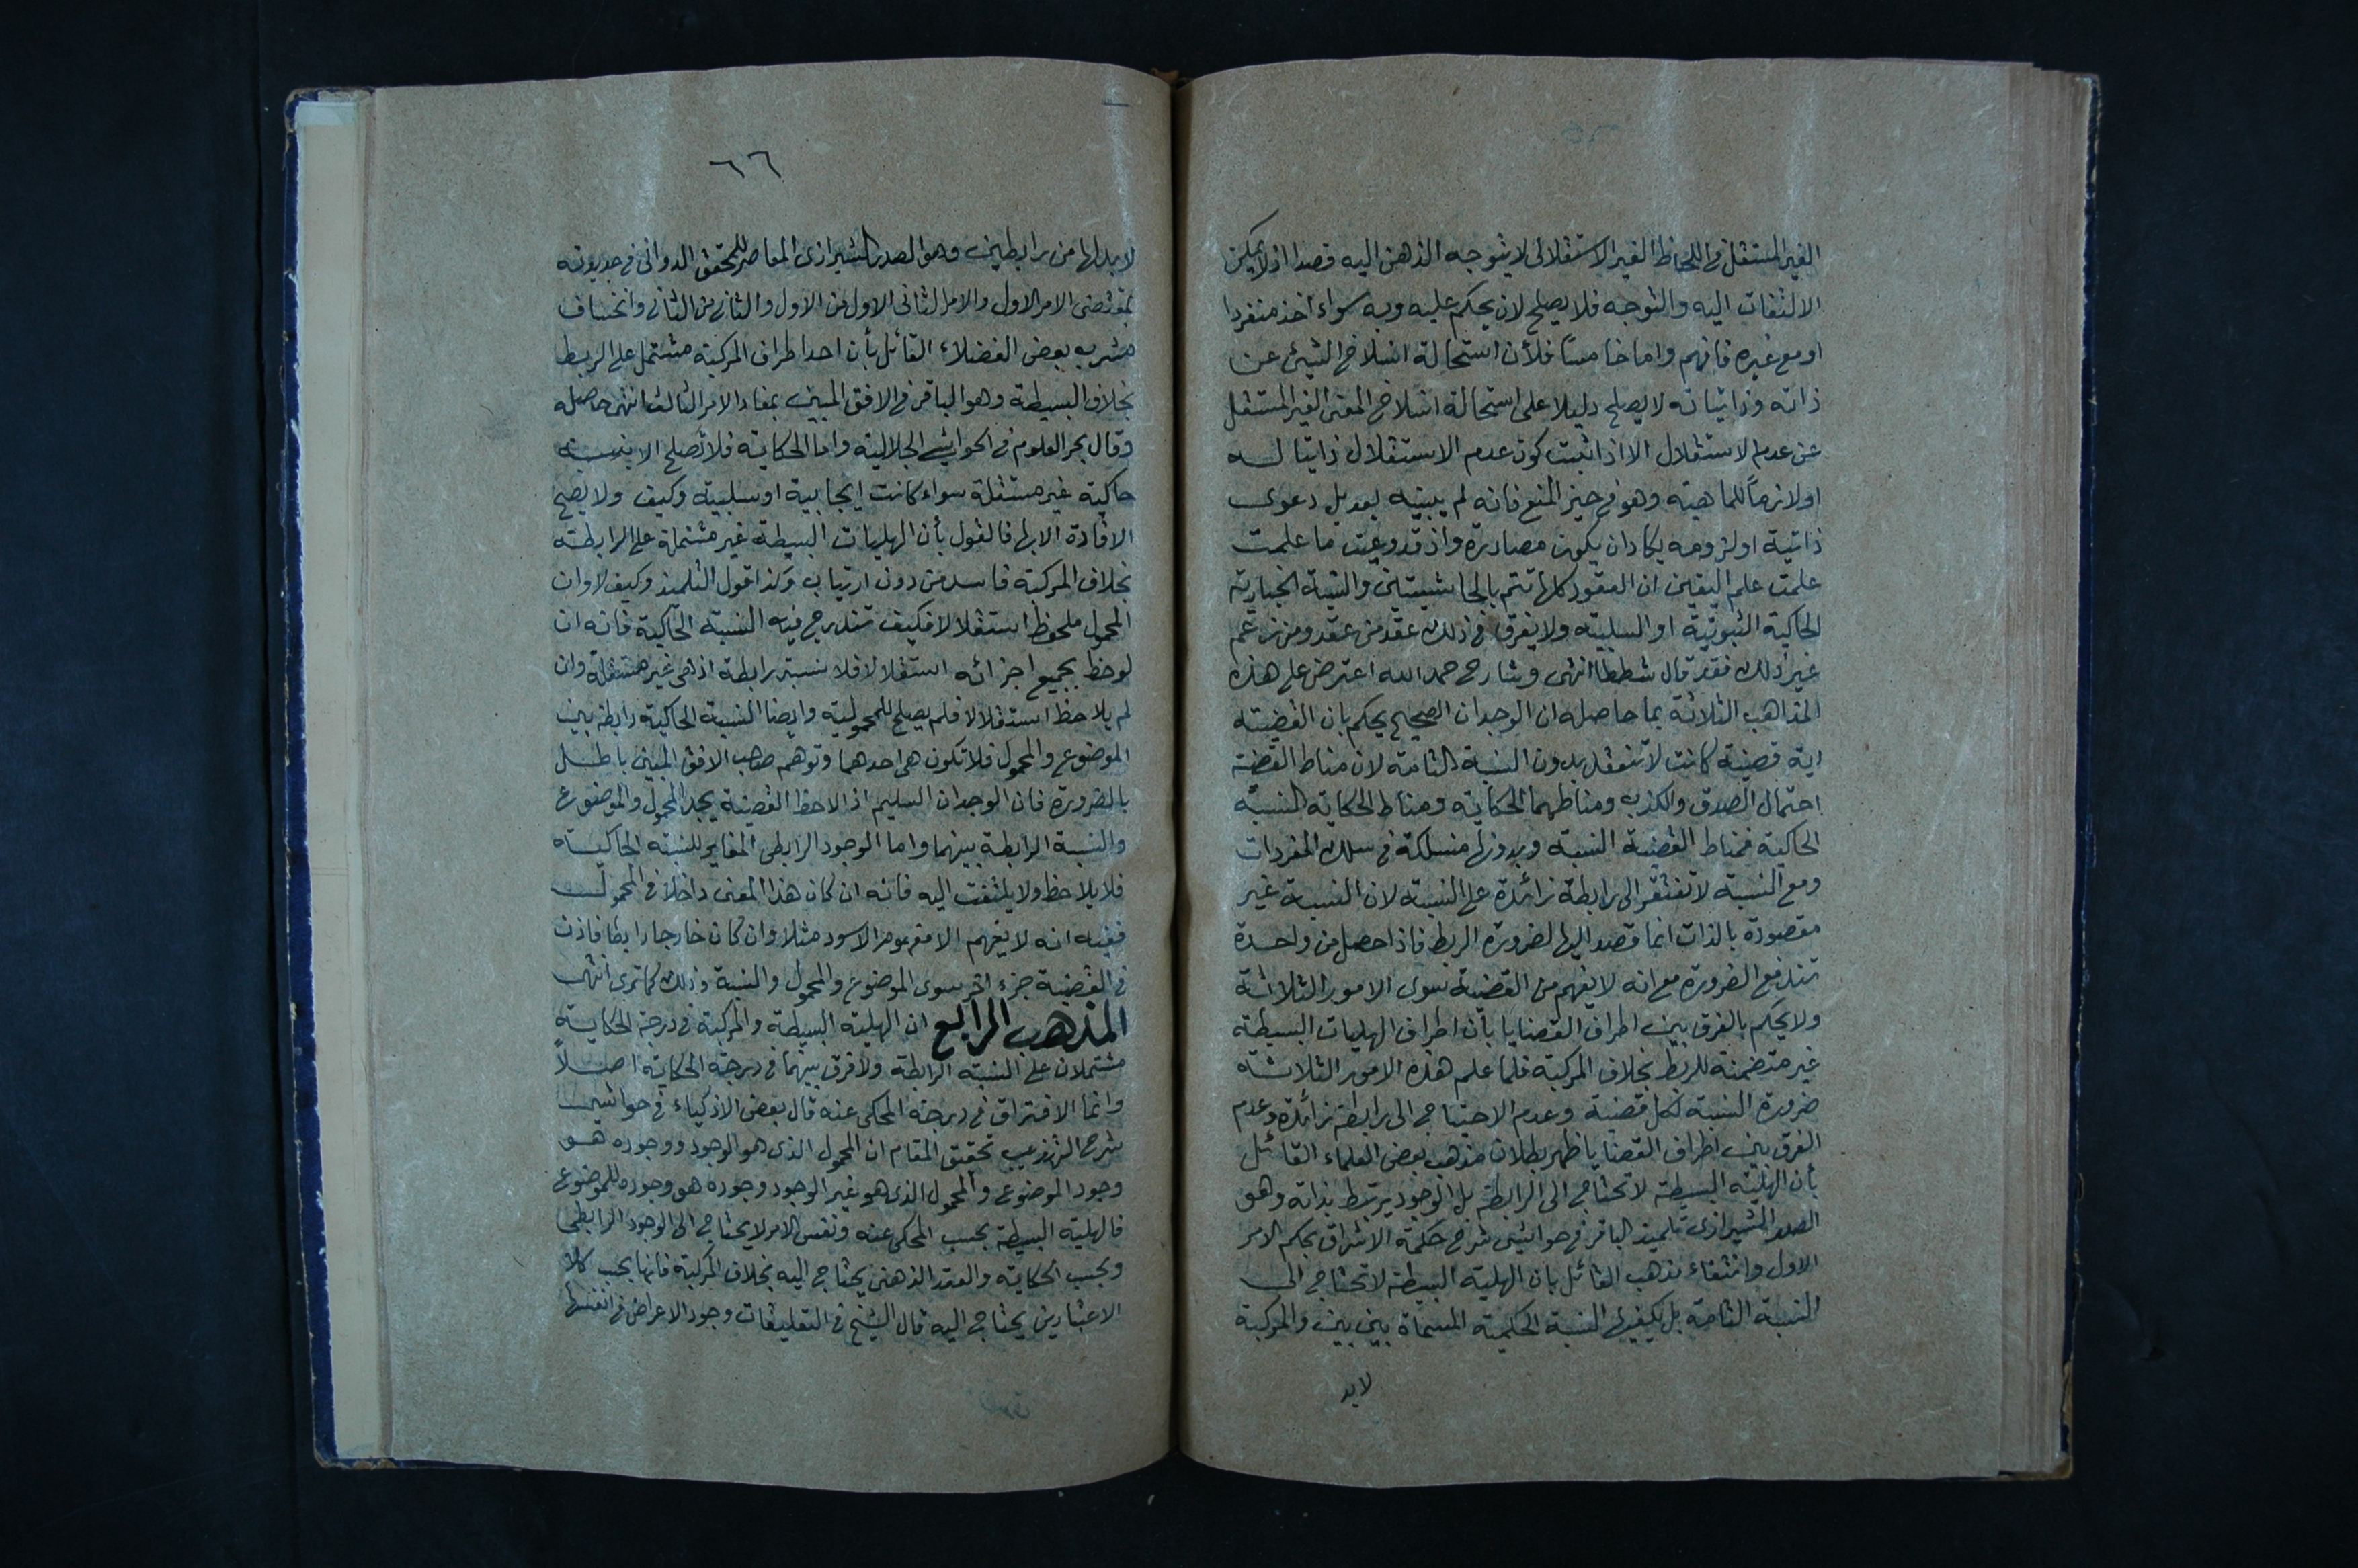 الغير المستقل في اللحاظ الغير الاستقلالى لا يتوجه الذهن اليه قصدا اذ لا يمكن
الالتفات اليه والتوجه فلا يصلح لان يحكم عليه وبه سواء اخذ منفردا
او مع غيره فافهم واما خامسًا فلأن استحالة انسلاخ الشيئ عن
ذاته وذاتياته لا يصلح دليلا على استحالة انسلاخ المعنى الغير المستقل
عن عدم الاستقلال الا اذا ثبت كون عدم الاستقلال ذاتيا له
او لازمًا للماهية وهو في حيز المنع فانه لم يبينه بعد بل دعوى
ذاتية او لزومه يكاد ان يكون مصادرة واذ قد وعيت ما علمت
علمت علم اليقين ان العقود كلها تتم بالحاشيتين والنسبة الخبارية
الحاكية الثبوتية او السلبية ولا يفرق في ذلك عقد من عقد ومن زعم
غير ذلك فقد قال شططا انتهى وشارح حمد الله اعترض على هذه
المذاهب الثلاثة بما حاصله ان الوجدان الصحيح يحكم بان القضية
اية قضية كانت لا تنعقد بدون النسبة التامة لان مناط القضية
احتمال الصدق والكذب ومناطهما الحكاية ومناط الحكاية النسبة
الحاكية فمناط القضية النسبة وبدونها منسلكة في سلك المفردات
ومع النسبة لا تفتقر الى رابطة زائدة على النسبة لان النسبة غير
مقصودة بالذات انما قصد اليها لضرورة الربط فاذا حصل من واحدة
تندفع الضرورة مع انه لا يفهم من القضية سوى الامور الثلاثة
ولا يحكم بالفرق بين اطراف القضايا بأن اطراف الهليات البسيطة
غير متضمنة للربط بخلاف المركبة فلما علم هذه الامور الثلاثة
ضرورة النسبة لكل قضية وعدم الاحتياج الى رابطة زائدة وعدم
الفرق بين اطراف القضايا ظهر بطلان مذهب بعض العلماء القائل
بأن الهلية البسيطة لا تحتاج الى الرابطة بل الوجود يرتبط بذاته وهو
الصدر الشيرازى تلميذ الباقر في حواشى شرح حكمة الاشراق بحكم الامر
الاول وانتفاء مذهب القائل بان الهلية البسيطة لا تحتاج الى
النسبة التامة بل يكفيها النسبة الحكمية المسماة بين بين والمركبة
لابد
٦٦
لابد لها من رابطين وهو الصدر الشيرازى المعاصر للمحقق الدوانى في جديدته
بمقتضى الامر الاول والامر الثانى الاول من الاول والثانى من الثانى وانخساف
مشرب بعض الفضلاء القائل بأن احد اطراف المركبة مشتمل على الربط
بخلاف البسيطة وهو الباقر في الافق المبين بمفاد الامر الثالث انتهى حاصله
وقال بحر العلوم في الحواشى الجلالية واما الحكاية فلا تصلح الا بنسبة
حاكية غير مستقلة سواء كانت ايجابية او سلبية وكيف ولا يصح
الافادة الا بها فالقول بأن الهليات البسيطة غير مشتملة على الرابطة
بخلاف المركبة فاسد من دون ارتياب وكذا قول التلميذ وكيف لا وان
المحمول ملحوظ استقلالا فكيف تندرج فيه النسبة الحاكية فانه ان
لوحظ بجميع اجزائه استقلالا فلا نسبة رابطة اذ هى غير مستقلة وان
لم يلاحظ استقلالا فلم يصلح للمحمولية وايضا النسبة الحاكية رابطة بين
الموضوع والمحمول فلا تكون هى احدهما وتوهم صاحب الافق المبين باطل
بالضرورة فان الوجدان السليم اذا لاحظ القضية يجد المحمول والموضوع
والنسبة الرابطة بينهما واما الوجود الرابطى المغاير للنسبة الحاكية
فلا يلاحظ ولا يلتفت اليه فانه ان كان هذا المعنى داخلا في المحمول
ففيه انه لا يفهم الا مفهوم الاسود مثلا وان كان خارجا رابطا فاذن
في القضية جزء آخر سوى الموضوع والمحمول والنسبة وذلك كما ترى انتهى
المذهب الرابع ان الهلية البسيطة والمركبة في درجة الحكاية
مشتملان على النسبة الرابطة ولا فرق بينهما في درجة الحكاية اصلاً
وانما الافتراق في درجة المحكى عنه قال بعض الاذكياء في حواشى
شرح التهذيب تحقيق المقام ان المحمول الذى هو الوجود ووجوده هو
وجود الموضوع والمحمول الذى هو غير الوجود وجوده هو وجوده للموضوع
فالهلية البسيطة بحسب المحكى عنه ونفس الامر لا يحتاج الى الوجود الرابطى
وبحسب الحكاية والعقد الذهنى يحتاج اليه بخلاف المركبة فانها بحسب كلا
الاعتبارين يحتاج اليه قال الشيخ في التعليقات وجود الاعراض في انفسها